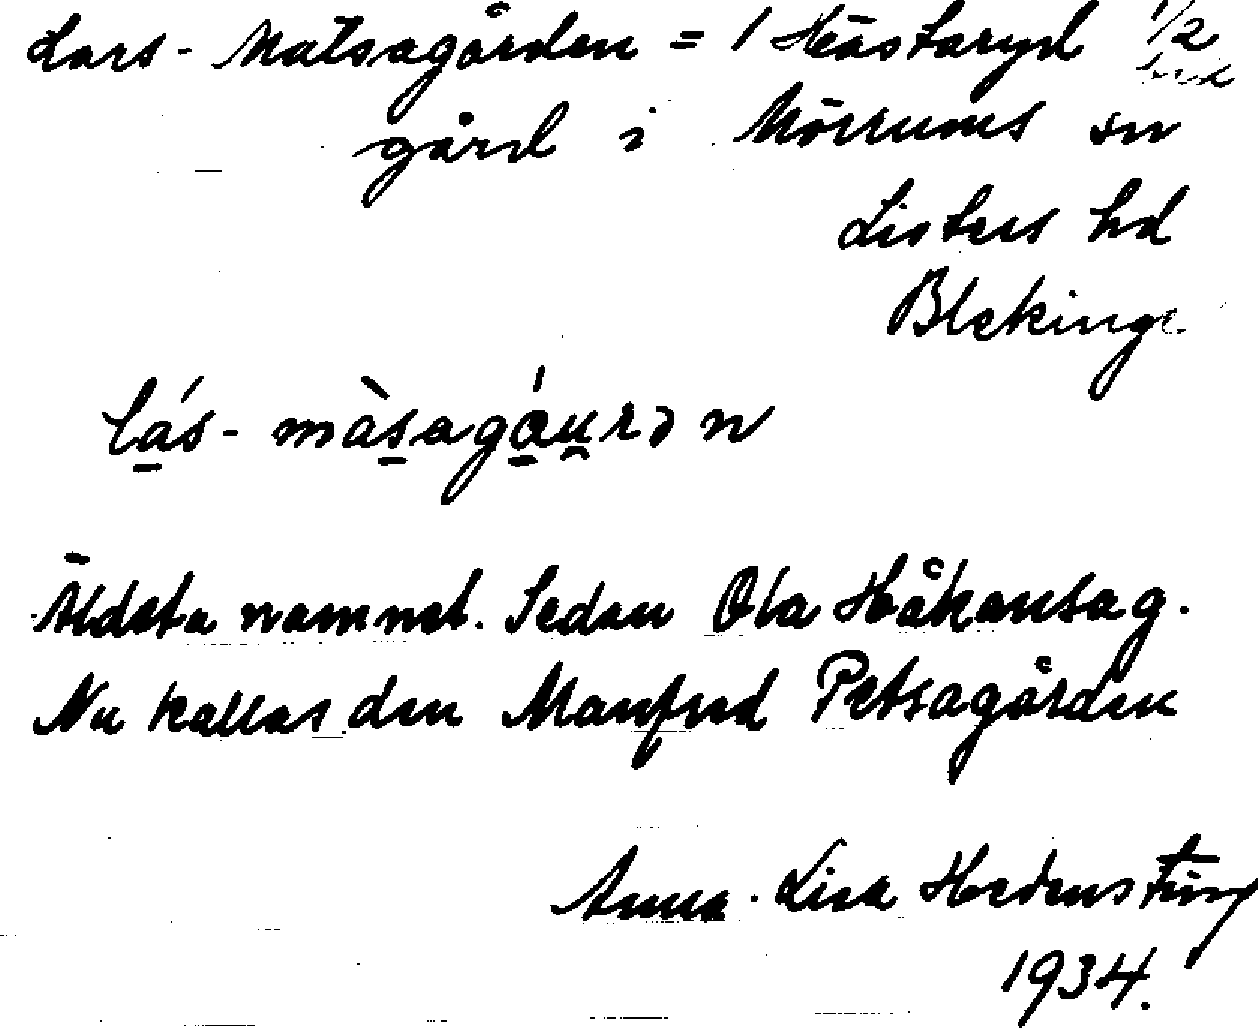 Lars-Matsagården = 1 Hästaryd 1/2
gård i Mörrums sn
Listers hd
Blekinge
lás-màsagáu̯rən
Äldsta namnet. Sedan Ola Håkansag.
Nu kallas den Manfred Petsagården
Anna-Lisa
1934.